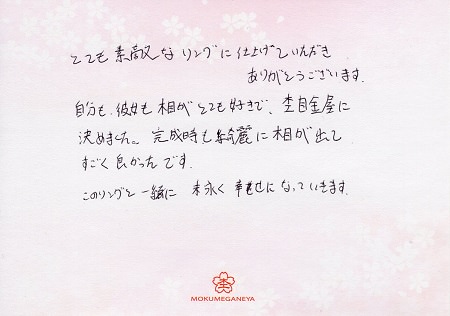 とても素敵なリングに仕上げていただき
ありがとうございます.
自分も、彼女も桜がとても好きで、杢目金屋に
決めました。完成時も綺麗に桜が出て
すごく良かったです.
このリングと一緒に 末永く幸せになっていきます.
MOKUMEGANEYA